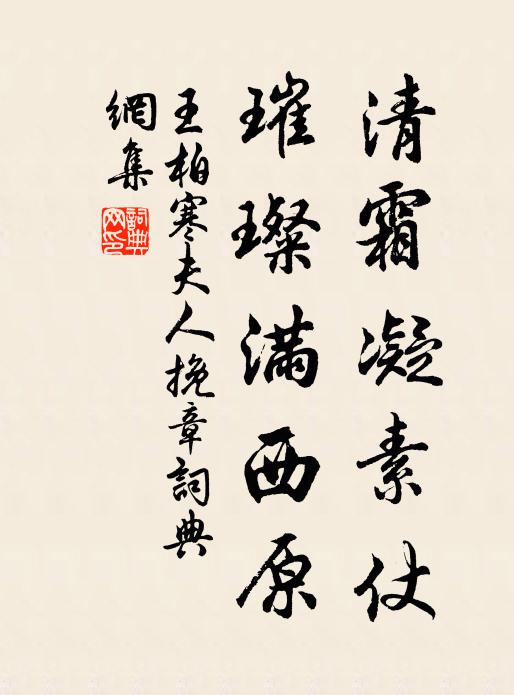 清霜凝素仗
璀璨满西原
王柏寒夫人挽章詞典
網集
詞典網印